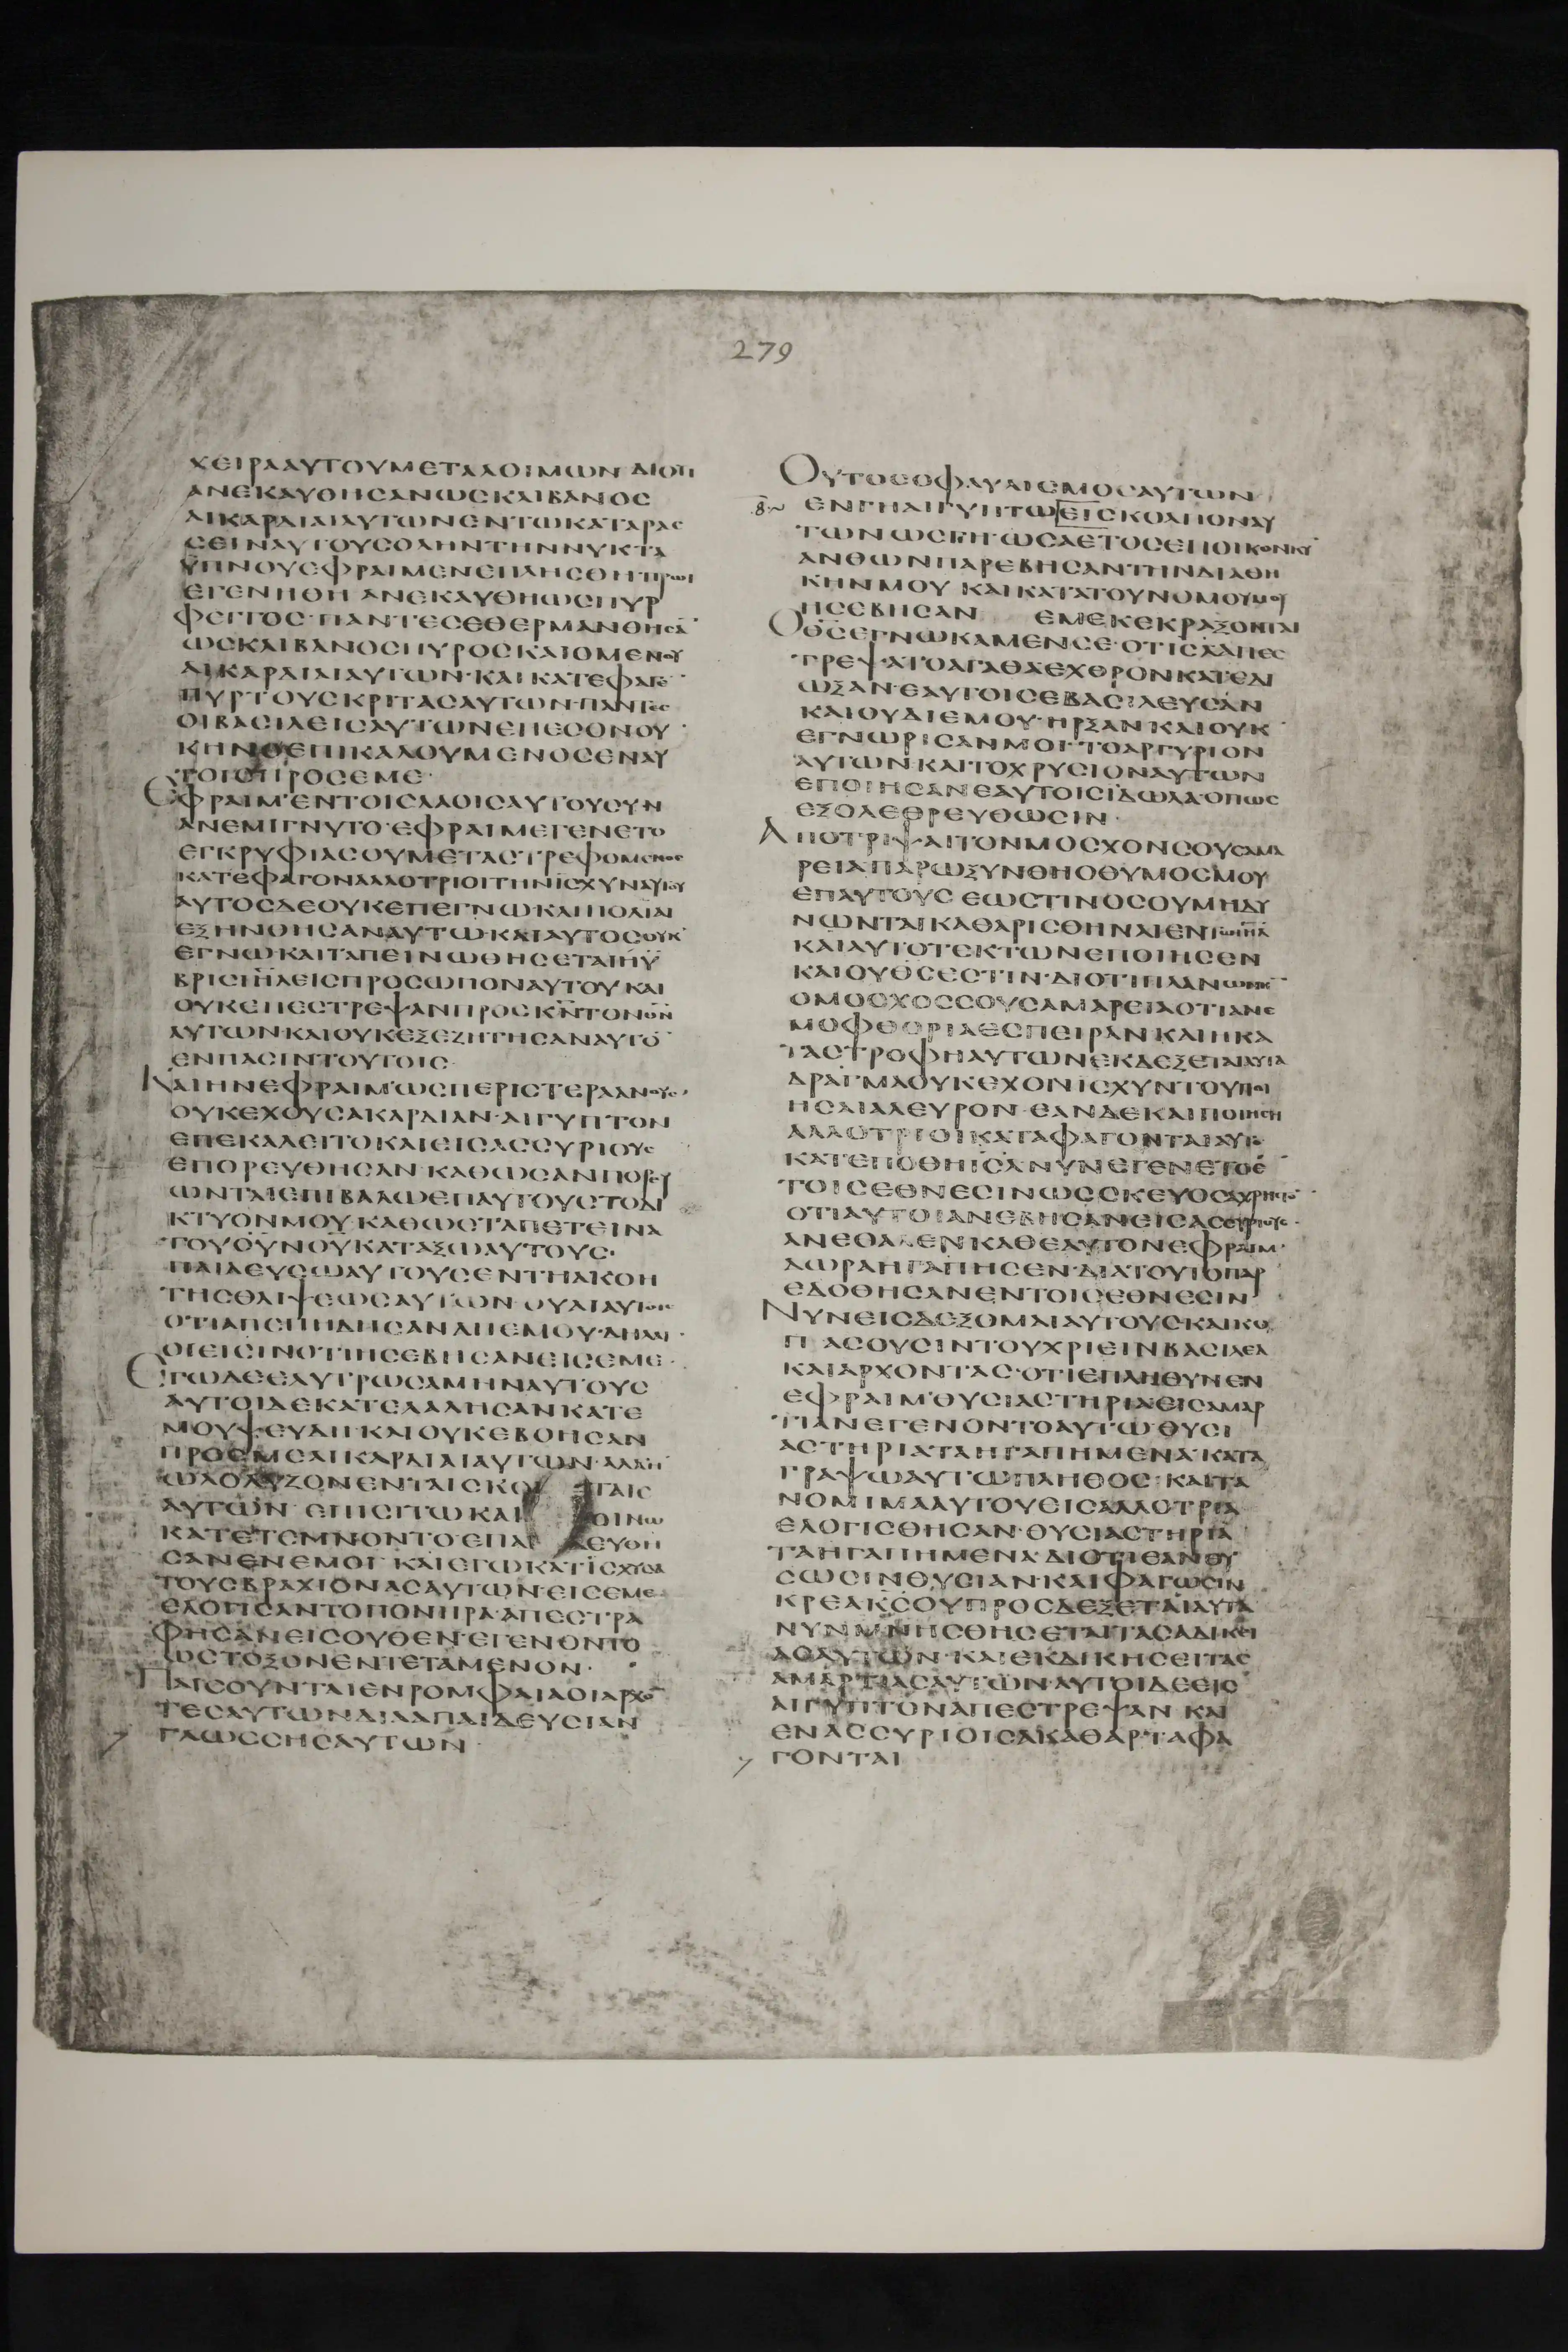 279
ΧΕΙΡΑΑΥΤΟΥΜΕΤΑΛΟΙΜΩΝ ΔΙΟΤΙ
ΑΝΕΚΑΥΘΗϹΑΝΩϹΚΛΙΒΑΝΟϹ
ΑΙΚΑΡΔΙΑΙΑΥΤΩΝΕΝΤΩΚΑΤΑΡΑϹ
ϹΕΙΝΑΥΤΟΥϹΟΛΗΝΤΗΝΝΥΚΤΑ
ΫΠΝΟΥΕΦΡΑΙΜΕΝΕΠΛΗϹΘΗΠΡΩΙ
ΕΓΕΝΗΘΗ ΑΝΕΚΑΥΘΗΩϹΠΥΡ
ΦΕΓΓΟϹ·ΠΑΝΤΕϹΕΘΕΡΜΑΝΘΗϹΑ̅
ΩϹΚΛΙΒΑΝΟϹΠΥΡΟϹΚΑΙΟΜΕΝΟΥ
ΑΙΚΑΡΔΙΑΙΑΥΤΩΝ·ΚΑΙΚΑΤΕΦΑΓΕ̅
ΠΥΡΤΟΥϹΚΡΙΤΑϹΑΥΤΩΝ·ΠΑΝΤΕϹ
ΟΙΒΑϹΙΛΕΙϹΑΥΤΩΝΕΠΕϹΟΝΟΥ
ΚΗΝΟΕΠΙΚΑΛΟΥΜΕΝΟϹΕΝΑΥ
ΤΟΙϹΠΡΟϹΕΜΕ·
ΕΦΡΑΙΜ·ΕΝΤΟΙϹΛΑΟΙϹΑΥΤΟΥϹΥΝ
ΑΝΕΜΙΓΝΥΤΟ·ΕΦΡΑΙΜΕΓΕΝΕΤΟ
ΕΓΚΡΥΦΙΑϹΟΥΜΕΤΑϹΤΡΕΦΟΜΕΝΟϹ
ΚΑΤΕΦΑΓΟΝΑΛΛΟΤΡΙΟΙΤΗΝΙϹΧΥΝΑΥΤΟΥ
ΑΥΤΟϹΔΕΟΥΚΕΠΕΓΝΩ·ΚΑΙΠΟΛΙΑΙ
ΕΞΗΝΘΗϹΑΝΑΥΤΩ·ΚΑΙΑΥΤΟϹΟΥΚ
ΕΓΝΩ·ΚΑΙΤΑΠΕΙΝΩΘΗϹΕΤΑΙΗΫ
ΒΡΙϹΙΗ̅Λ̅ΕΙϹΠΡΟϹΩΠΟΝΑΥΤΟΥ ΚΑΙ
ΟΥΚΕΠΕϹΤΡΕΨΑΝΠΡΟϹΚ̅Ν̅ΤΟΝΘ̅Ν̅
ΑΥΤΩΝ·ΚΑΙΟΥΚΕΞΕΖΗΤΗϹΑΝΑΥΤΟ̅
ΕΝΠΑϹΙΝΤΟΥΤΟΙϹ
ΚΑΙΗΝΕΦΡΑΙΜ·ΩϹΠΕΡΙϹΤΕΡΑΑΝΟΥϹ·
ΟΥΚΕΧΟΥϹΑΚΑΡΔΙΑΝ·ΑΙΓΥΠΤΟΝ
ΕΠΕΚΑΛΕΙΤΟΚΑΙΕΙϹΑϹϹΥΡΙΟΥϹ
ΕΠΟΡΕΥΘΗϹΑΝ·ΚΑΘΩϹΑΝΠΟΡΕΥ
ΩΝΤΑΙΕΠΙΒΑΛΩΕΠΑΥΤΟΥϹΤΟΔΙ
ΚΤΥΟΝΜΟΥ·ΚΑΘΩϹΤΑΠΕΤΕΙΝΑ
ΤΟΥΟΥΝΟΥΚΑΤΑΞΩΑΥΤΟΥϹ·
ΠΑΙΔΕΥϹΩΑΥΤΟΥϹΕΝΤΗΑΚΟΗ
ΤΗϹΘΛΙΨΕΩϹΑΥΤΩΝ·ΟΥΑΙΑΥΤΟΙϹ
ΟΤΙΑΠΕΠΗΔΗϹΑΝΑΠΕΜΟΥ·ΔΗΛΑΙ
ΟΙΕΙϹΙΝΟΤΙΗϹΕΒΗϹΑΝΕΙϹΕΜΕ·
ΕΓΩΔΕΕΛΥΤΡΩϹΑΜΗΝΑΥΤΟΥϹ
ΑΥΤΟΙΔΕΚΑΤΕΛΑΛΗϹΑΝΚΑΤΕ
ΜΟΥΨΕΥΔΗ·ΚΑΙΟΥΚΕΒΟΗϹΑΝ
ΠΡΟϹΜΕΑΙΚΑΡΔΙΑΙΑΥΤΩΝ·ΑΛΛΗ
ΩΛΟΛΥΖΟΝΕΝΤΑΙϹΚΟΙ ΤΑΙϹ
ΑΥΤΩΝ·ΕΠΙϹΙΤΩΚΑΙ ΟΙΝΩ
ΚΑΤΕΤΕΜΝΟΝΤΟΕΠΑΙ ΔΕΥΘΗ
ϹΑΝΕΝΕΜΟΙ·ΚΑΙΕΓΩΚΑΤΙϹΧΥϹΑ
ΤΟΥϹΒΡΑΧΙΟΝΑϹΑΥΤΩΝ·ΕΙϹΕΜΕ
ΕΛΟΓΙϹΑΝΤΟΠΟΝΗΡΑ·ΑΠΕϹΤΡΑ
ΦΗϹΑΝΕΙϹΟΥΘΕΝ·ΕΓΕΝΟΝΤΟ
ΩϹΤΟΞΟΝΕΝΤΕΤΑΜΕΝΟΝ·
ΠΕϹΟΥΝΤΑΙΕΝΡΟΜΦΑΙΑΟΙΑΡΧΟ̅
ΤΕϹΑΥΤΩΝΔΙΑΑΠΑΙΔΕΥϹΙΑΝ
ΓΛΩϹϹΗϹΑΥΤΩΝ
ΟΥΤΟϹΟΦΑΥΛΙϹΜΟϹΑΥΤΩΝ
ΕΝΓΗΑΙΓΥΠΤΩΕΙϹΚΟΛΠΟΝΑΥ
ΤΩΝΩϹΓΗ·ΩϹΑΕΤΟϹΕΠΟΙΚΟΝΚΥ
ΑΝΘΩΝΠΑΡΕΒΗϹΑΝΤΗΝΔΙΑΘΗ
ΚΗΝΜΟΥ ΚΑΙΚΑΤΑΤΟΥΝΟΜΟΥΜΟΥ
ΗϹΕΒΗϹΑΝ ΕΜΕΚΕΚΡΑΞΟΝΤΑΙ
ΟΘ̅Ϲ̅ΕΓΝΩΚΑΜΕΝϹΕ·ΟΤΙΙ̅Η̅Λ̅ΑΠΕϹ
ΤΡΕΨΑΤΟΑΓΑΘΑΕΧΘΡΟΝΚΑΤΕΔΙ
ΩΞΑΝ·ΕΑΥΤΟΙϹΕΒΑϹΙΛΕΥϹΑΝ
ΚΑΙΟΥΔΙΕΜΟΥ·ΗΡΞΑΝΚΑΙΟΥΚ
ΕΓΝΩΡΙϹΑΝΜΟΙ·ΤΟΑΡΓΥΡΙΟΝ
ΑΥΤΩΝΚΑΙΤΟΧΡΥϹΙΟΝΑΥΤΩΝ
ΕΠΟΙΗϹΑΝΕΑΥΤΟΙϹΙΔΩΛΑ·ΟΠΩϹ
ΕΞΟΛΕΘΡΕΥΘΩϹΙΝ·
ΑΠΟΤΡΙΨΑΙΤΟΝΜΟϹΧΟΝϹΟΥϹΑΜΑ
ΡΕΙΑΠΑΡΩΞΥΝΘΗΟΘΥΜΟϹΜΟΥ
ΕΠΑΥΤΟΥϹ ΕΩϹΤΙΝΟϹΟΥΜΗΔΥ
ΝΩΝΤΑΙΚΑΘΑΡΙϹΘΗΝΑΙΕΝΤΩΙΗ̅Λ̅
ΚΑΙΑΥΤΟΤΕΚΤΩΝΕΠΟΙΗϹΕΝ
ΚΑΙΟΥΘ̅Ϲ̅ΕϹΤΙΝ·ΔΙΟΤΙΠΛΑΝΩΝΗΝ
ΟΜΟϹΧΟϹϹΟΥϹΑΜΑΡΕΙΑΟΤΙΑΝΕ
ΜΟΦΘΟΡΙΑΕϹΠΕΙΡΑΝ·ΚΑΙΗΚΑ
ΤΑϹΤΡΟΦΗΑΥΤΩΝΕΚΔΕΞΕΤΑΙΑΥΤΑ
ΔΡΑΓΜΑΟΥΚΕΧΟΝΙϹΧΥΝΤΟΥΠΟΙ
ΗϹΑΙΑΛΕΥΡΟΝ·ΕΑΝΔΕΚΑΙΠΟΙΗϹΗ
ΑΛΛΟΤΡΙΟΙΚΑΤΑΦΑΓΟΝΤΑΙΑΥΤΟ
ΚΑΤΕΠΟΘΗΙ̅Η̅Λ̅ΝΥΝΕΓΕΝΕΤΟΕ̅
ΤΟΙϹΕΘΝΕϹΙΝΩϹϹΚΕΥΟϹΑΧΡΗϹΤΟ̅
ΟΤΙΑΥΤΟΙΑΝΕΒΗϹΑΝΕΙϹΑϹϹΥΡΙΟΥϹ·
ΑΝΕΘΑΛΕΝΚΑΘΕΑΥΤΟΝΕΦΡΑΙΜ·
ΔΩΡΑΗΓΑΠΗϹΕΝ·ΔΙΑΤΟΥΤΟΠΑΡ
ΕΔΟΘΗϹΑΝΕΝΤΟΙϹΕΘΝΕϹΙΝ
ΝΥΝΕΙϹΔΕΞΟΜΑΙΑΥΤΟΥϹΚΑΙΚΟ
ΠΑϹΟΥϹΙΝΤΟΥΧΡΙΕΙΝΒΑϹΙΛΕΑ
ΚΑΙΑΡΧΟΝΤΑϹ·ΟΤΙΕΠΛΗΘΥΝΕΝ
ΕΦΡΑΙΜ·ΘΥϹΙΑϹΤΗΡΙΑΕΙϹΑΜΑΡ
ΤΙΑΝΕΓΕΝΟΝΤΟΑΥΤΩ·ΘΥϹΙ
ΑϹΤΗΡΙΑΤΑΗΓΑΠΗΜΕΝΑ·ΚΑΤΑ
ΓΡΑΨΩΑΥΤΩΠΛΗΘΟϹ·ΚΑΙΤΑ
ΝΟΜΙΜΑΑΥΤΟΥΕΙϹΑΛΛΟΤΡΙΑ
ΕΛΟΓΙϹΘΗϹΑΝ·ΘΥϹΙΑϹΤΗΡΙΑ
ΤΑΗΓΑΠΗΜΕΝΑ·ΔΙΟΤΙΕΑΝΘΥ
ϹΩϹΙΝΘΥϹΙΑΝ·ΚΑΙΦΑΓΩϹΙΝ
ΚΡΕΑΚ̅Ϲ̅ΟΥΠΡΟϹΔΕΞΕΤΑΙΑΥΤΑ
ΝΥΝΜΝΗϹΘΗϹΕΤΑΙΤΑϹΑΔΙΚΙ
ΑϹΑΥΤΩΝ·ΚΑΙΕΚΔΙΚΗϹΕΙΤΑϹ
ΑΜΑΡΤΙΑϹΑΥΤΩΝ·ΑΥΤΟΙΔΕΕΙϹ
ΑΙΓΥΠΤΟΝΑΠΕϹΤΡΕΨΑΝ ΚΑΙ
ΕΝΑϹϹΥΡΙΟΙϹΑΚΑΘΑΡΤΑΦΑ
ΓΟΝΤΑΙ